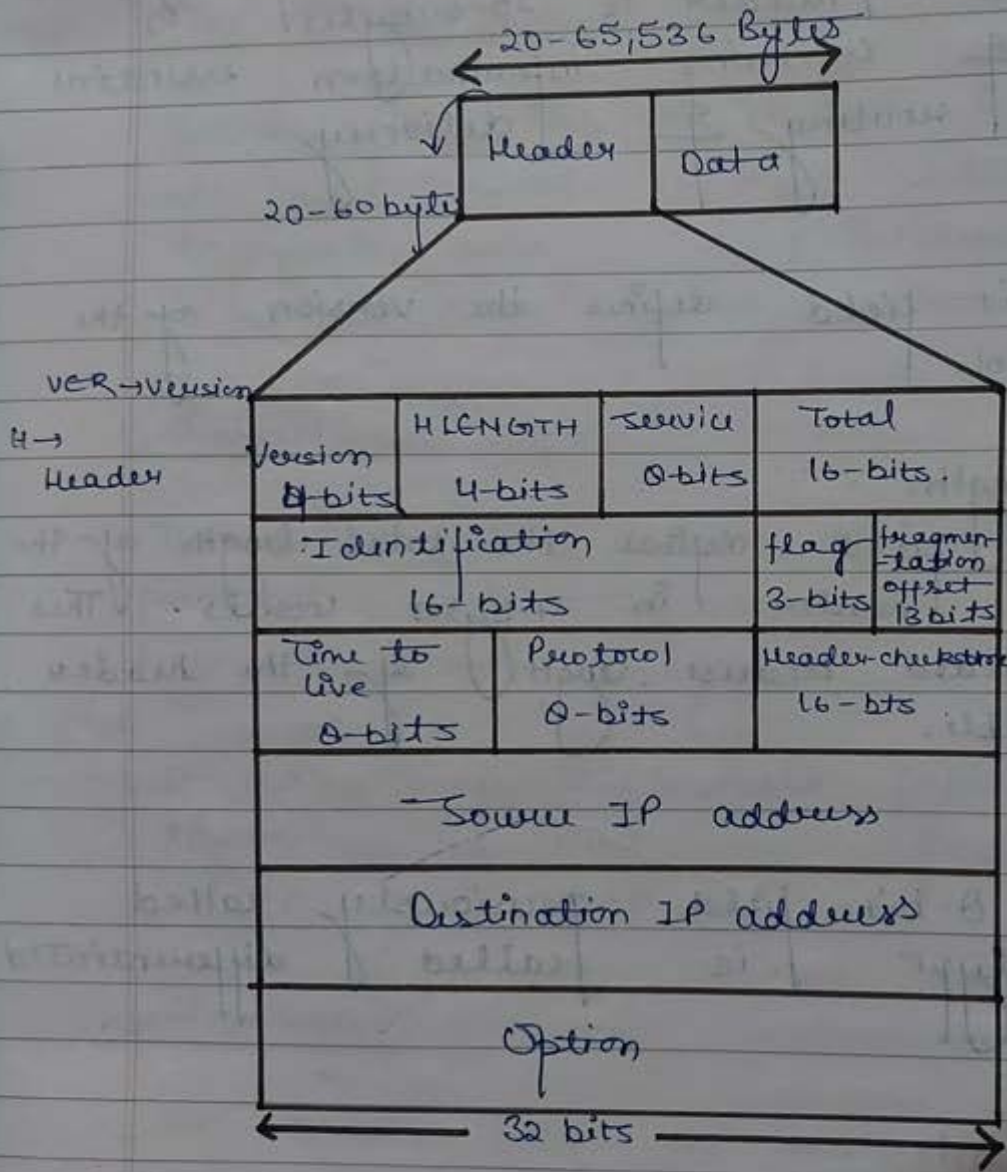 20-65,536 Bytes
Header
Data
20-60 byte
VER→Version
H→
Header
Version
4-bits
HLENGTH
4-bits
Service
8-bits
Total
16-bits.
Identification
16-bits
flag
3-bits
fragmen-
-tation
offset
13bits
Time to
live
8-bits
Protocol
8-bits
Header-checksum
16-bts
Source IP address
Destination IP address
Option
32 bits